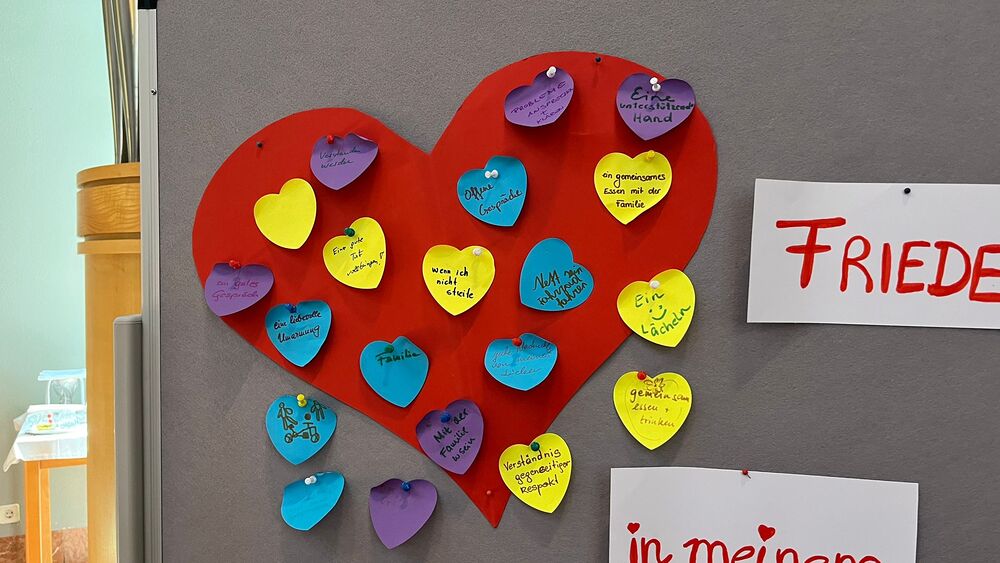 PROBLEME
ANSPRECHEN
Eine
unterstützende
Hand
Verstanden
werden
Offene
Gespräche
ein gemeinsames
Essen mit der
Familie
Eine gute
Tat
vollbringen!
wenn ich
nicht
streite
Nett sein
ein gutes
Gespräch
Ein
Lächeln
eine liebevolle
Umarmung
Familie
gemeinsam
essen +
trinken
Mit der
Familie
sein
Verständnis
gegenseitiger
Respekt
FRIEDE
in meinem